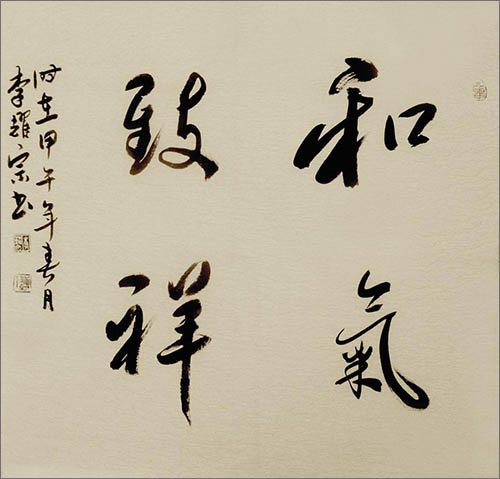 和氣
致祥
时在甲午年春月
李躍宗书